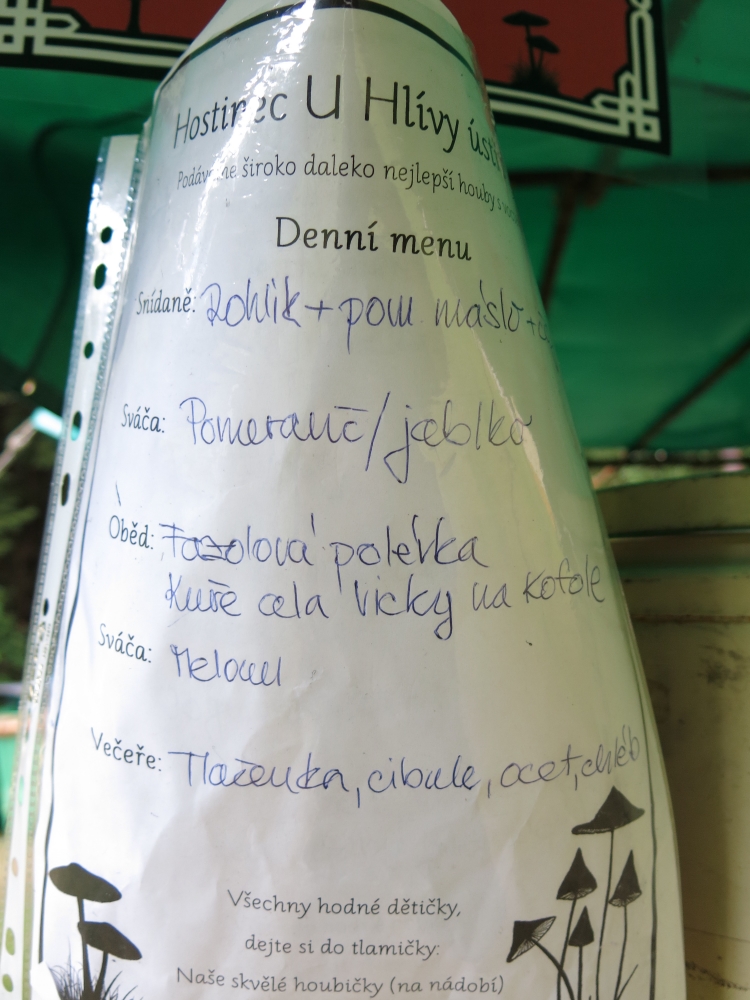 Hostinec U Hlívy
Podáváme široko daleko nejlepší houby s
Denní menu
Snídaně: Rohlík + pom máslo +
Sváča: Pomeranč/jablko
Oběd: Fazolová polévka
Kuře a la Vicky na kofole
Sváča: Meloun
Večeře: Tlačenka, cibule, ocet, chléb
Všechny hodné dětičky,
dejte si do tlamičky:
Naše skvělé houbičky (na nádobí)